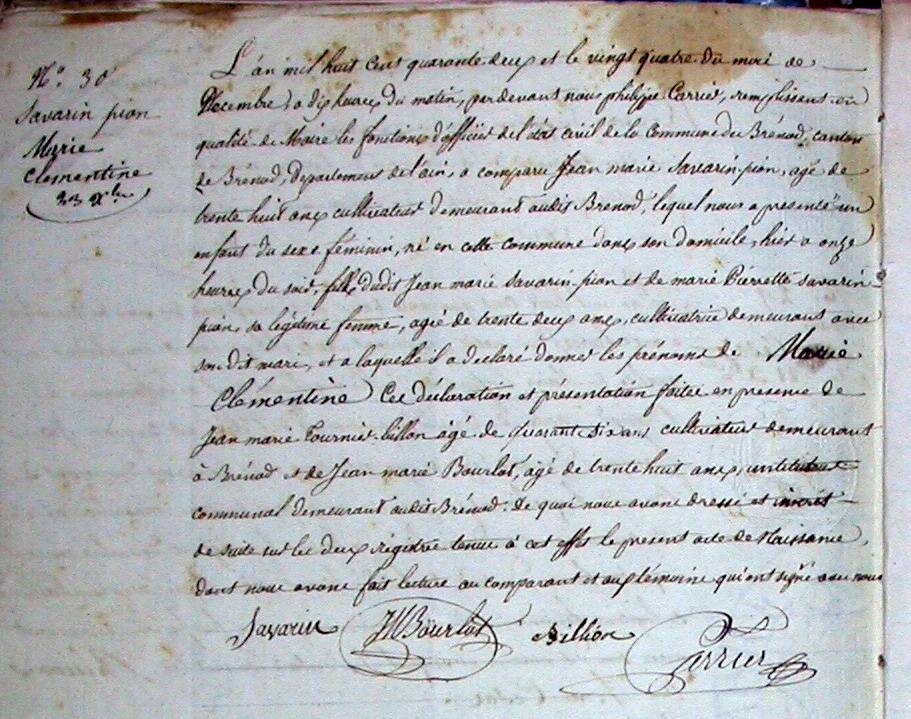 N.º 30
Savarin pion
Marie
Clementine
23 X.bre
L'án mil huit cent quarante deux et le vingt quatre du mois de
Décembre, à dix heures du matin, pardevant nous philippe Carrier, remplissant en
qualité de Maire les fonctions d'officier de l'état civil de la Commune de Brénod, canton
de Brénod, département de l'ain, a comparu Jean marie Savarin-pion, agé de
trente huit ans cultivateur demeurant audit Brenod, lequel nous a presenté un
enfant du sexe féminin, né en cette commune dans son domicile, hier a onze
heures du soir, fille dudit Jean marie Savarin-pion et de marie Pierrette Savarin-
pion, sa légitime femme, agée de trente deux ans, cultivatrice demeurant avec
son dit mari, et a laquelle il a déclaré donner les prénoms de Marie
Clémentine Ces déclaration et présentation faites en presence de
Jean marie Tournier-billon âgé de quarante six ans cultivateur demeurant
à Brénod et de Jean marie Bourlot, âgé de trente huit ans, instituteur
communal demeurant audit Brénod. De quoi nous avons dressé et inscrit
de suite sur les deux régistres tenus à cet effet le présent acte de Naissance,
dont nous avons fait lecture au comparant et aux témoins qui ont signé avec nous
Savarin JMBourlot Billion Carrier